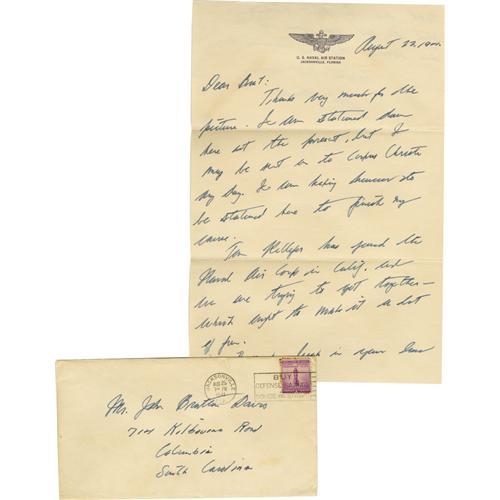 U. S. NAVAL AIR STATION
JACKSONVILLE, FLORIDA
August 22, 1941.
Dear Brat:
Thanks very much for the
picture. I am stationed down
here at the present, but I
may be sent on to Corpus Christi
any day. I am hoping however to
be stationed here to finish my
course.
Tom Phillips has joined the
Naval Air Corps in Calif. and
we are trying to get together—
which ought to make it a lot
of fun.
luck in your
JACKSONVILLE
AUG 25
BUY
DEFENSE SAVINGS
Mr. John Bratton Davis
Kilbourne Road
Columbia
South Carolina